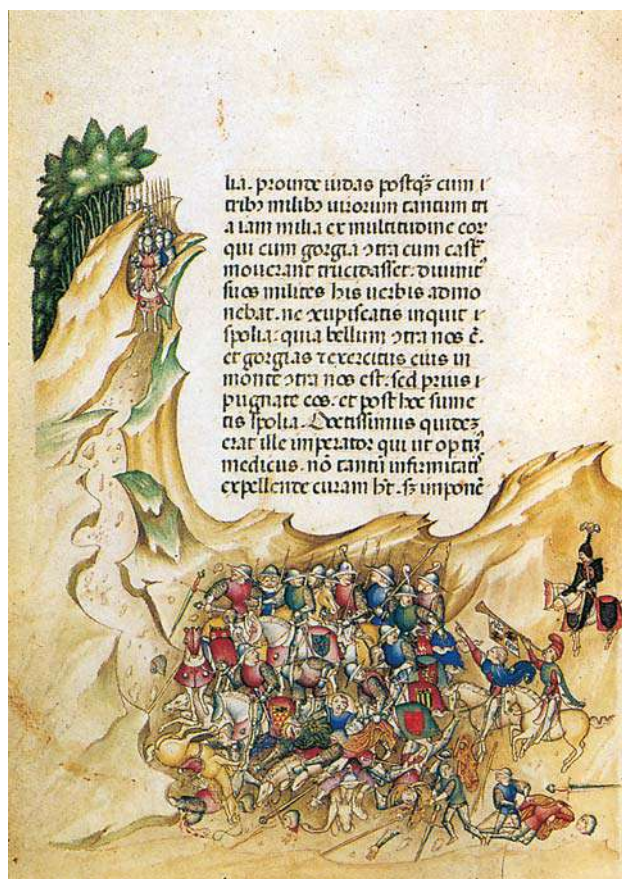 lia. proinde iudas postqȝ cum i
tribꝫ milibꝫ uirorum tantum tri
a iam milia ex multitudine eoꝝ
qui cum gorgia ɔtra eum cast
mouerant trucidasset. diuinit
suos milites his uerbis admo
nebat. ne ɔcupiscatis inquit i
spolia: quia bellum ɔtra nos ē.
et gorgias ⁊ exercitus eius in
monte ɔtra nos est. sed prius i
pugnate eos. et post hec sume
tis spolia. Doctissimus quideȝ
erat ille imperator qui ut optīꝰ
medicus. nō tantū infirmitatī
expellende curam hȝt. sȝ imponē